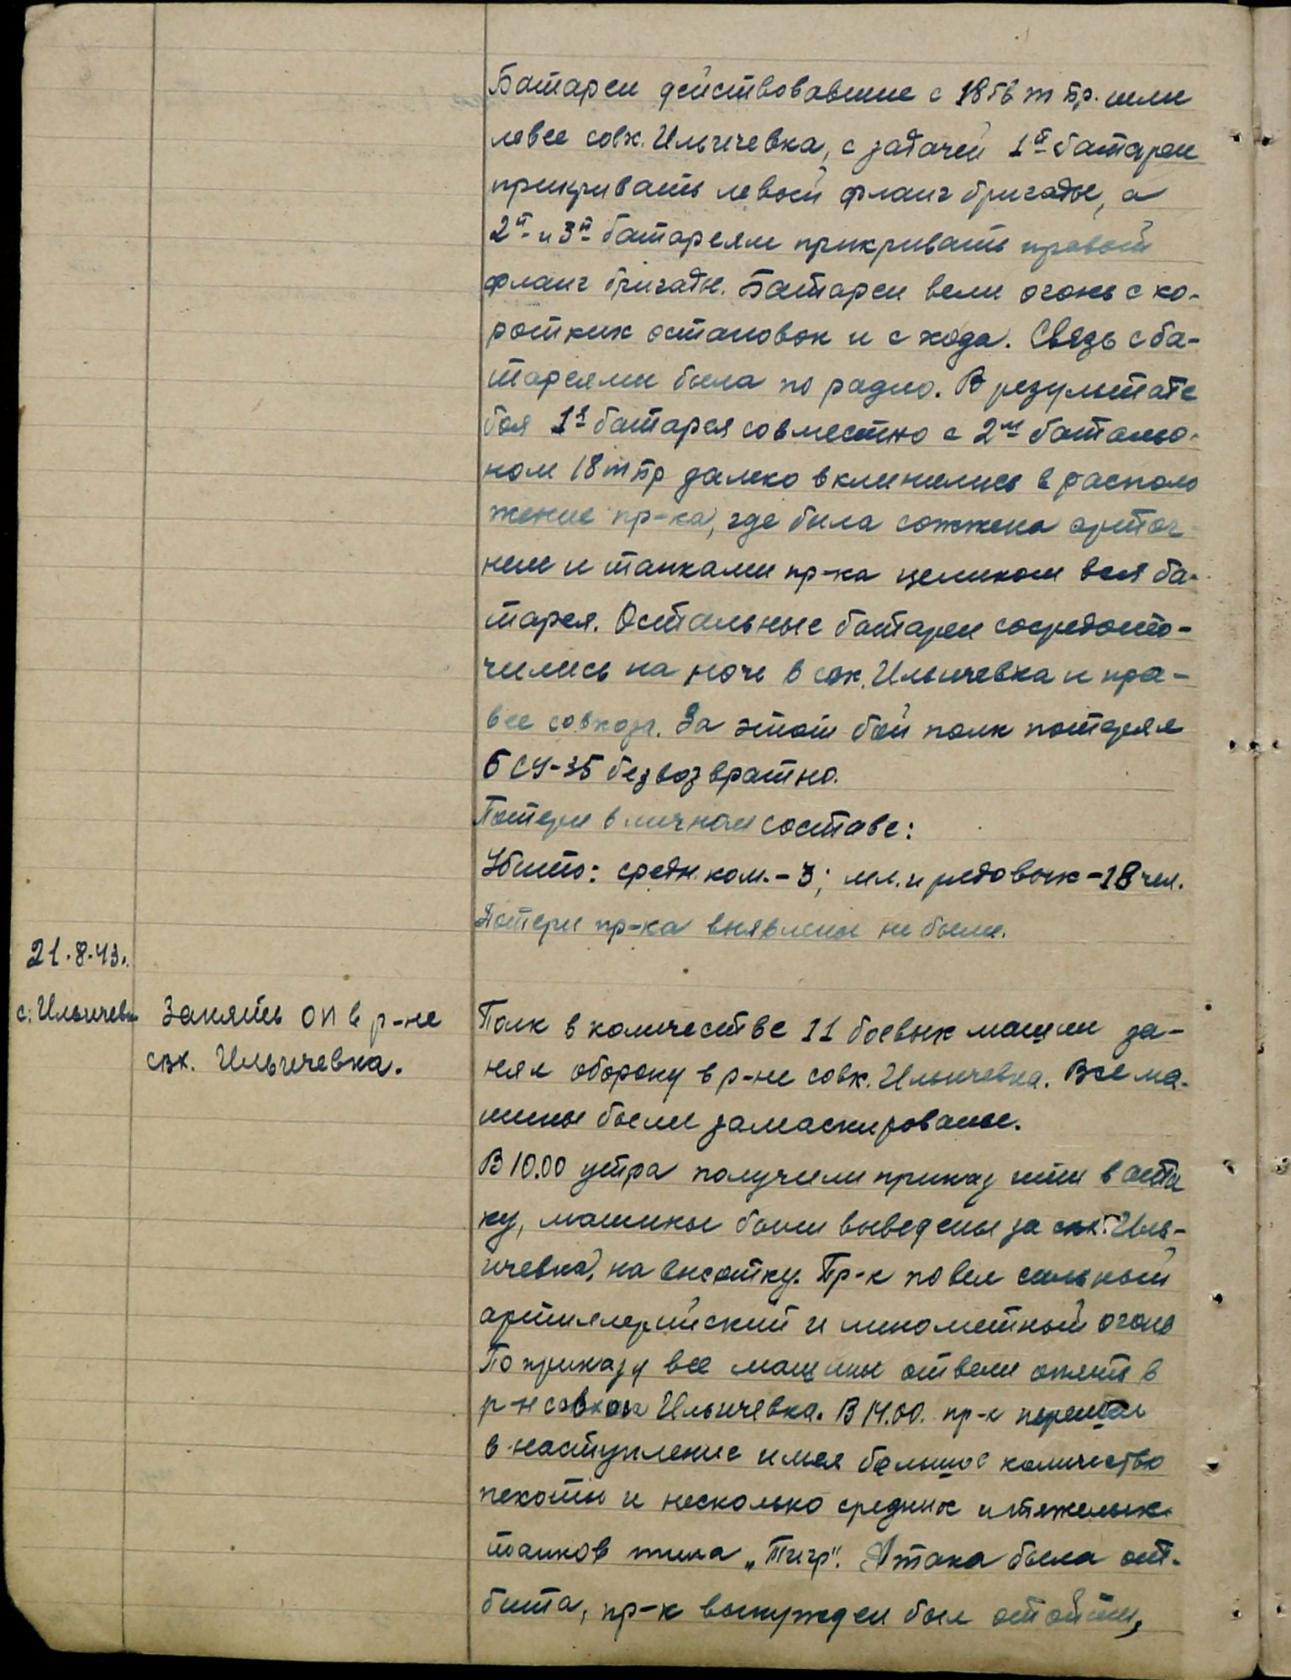 Батареи действовавшие с 18 гв тбр. шли
левее совх. Ильичевка, с задачей 1й батареи
прикривать левый фланг бригады, а
2й и 3й батареям прикривать правый
фланг бригады. Батареи вели огонь с ко-
ротких остановок и с хода. Связь с ба-
тареями была по радио. В результате
боя 1я батарея совместно с 2м батальо-
ном 18 тбр далеко вклинились в располо
жение пр-ка, где была сожжена артог-
нем и танками пр-ка целиком вся ба-
тарея. Остальные батареи сосредото-
чились на ночь в свх. Ильичевка и пра-
вее совхоза. За этот бой полк потерял
6 СУ-85 безвозвратно.
Потери в личном составе:
Убито: средн. ком. - 3; мл. и рядовых - 18 чел.
Потери пр-ка выявлены не были.
21.8.43.
с. Ильичевк
Занять ОП в р-не
свх. Ильичевка.
Полк в количестве 11 боевых машин за-
нял оборону в р-не совх. Ильичевка. Все ма-
шины были замаскированы.
В 10.00 утра получили приказ итти в ата
ку, машины были выведены за свх. Иль-
ичевка, на высотку. Пр-к повел сильный
артиллерийский и минометный огонь
По приказу все машины отвели опять в
р-н совхоза Ильичевка. В 14.00. пр-к перешел
в наступление имея большое количество
пехоты и несколько средних и тяжелых
танков типа „Тигр". Атака была от-
бита, пр-к вынужден был отойти,